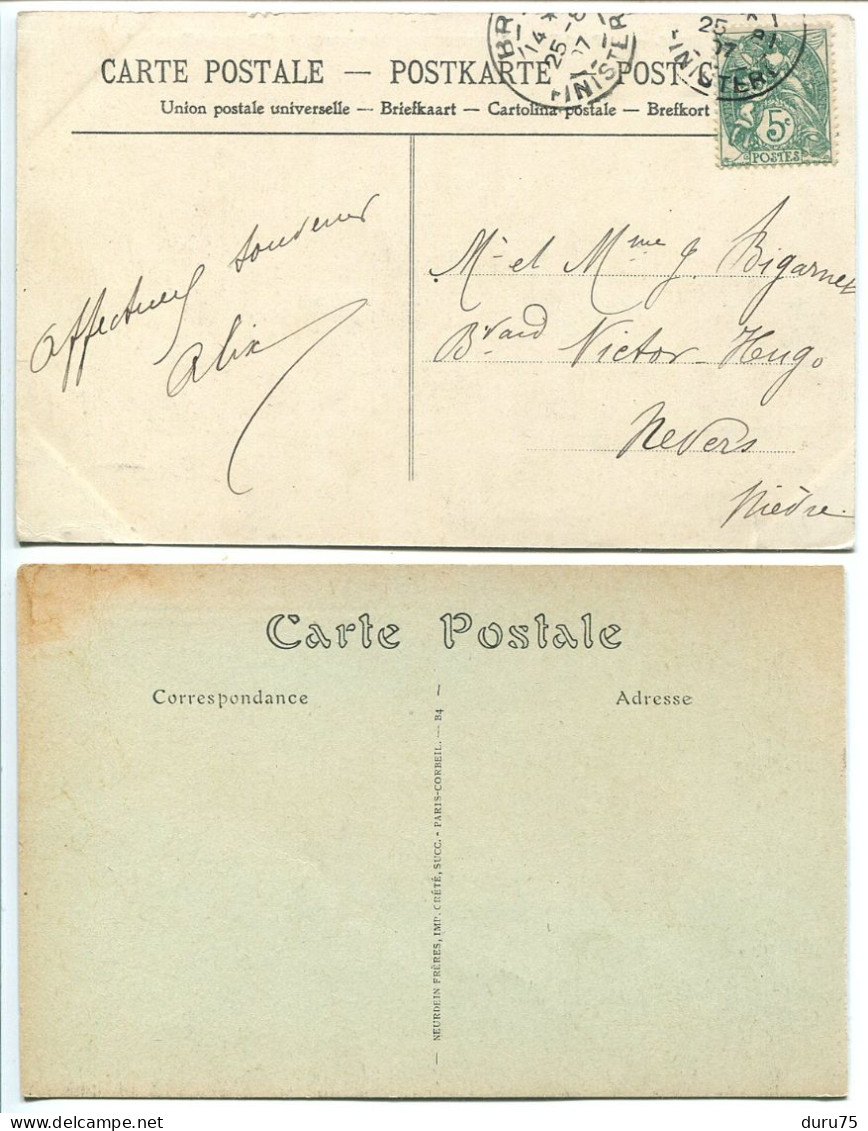 CARTE POSTALE — POSTKARTE — POST C
Union postale universelle — Briefkaart — Cartolina postale — Brefkort
BR
14 *
25 -8
07
FINISTER
25
07
FINISTER
5c
POSTES
Affectueux souvenir
Alix
Mr et Mme J. Bigarnet
Bvard Victor-Hugo
Nevers
Nièvre.
Carte Postale
Correspondance
Adresse
— NEURDEIN FRÈRES, IMP. CRÉTÉ, SUCC. - PARIS-CORBEIL. — B4 —
duru75